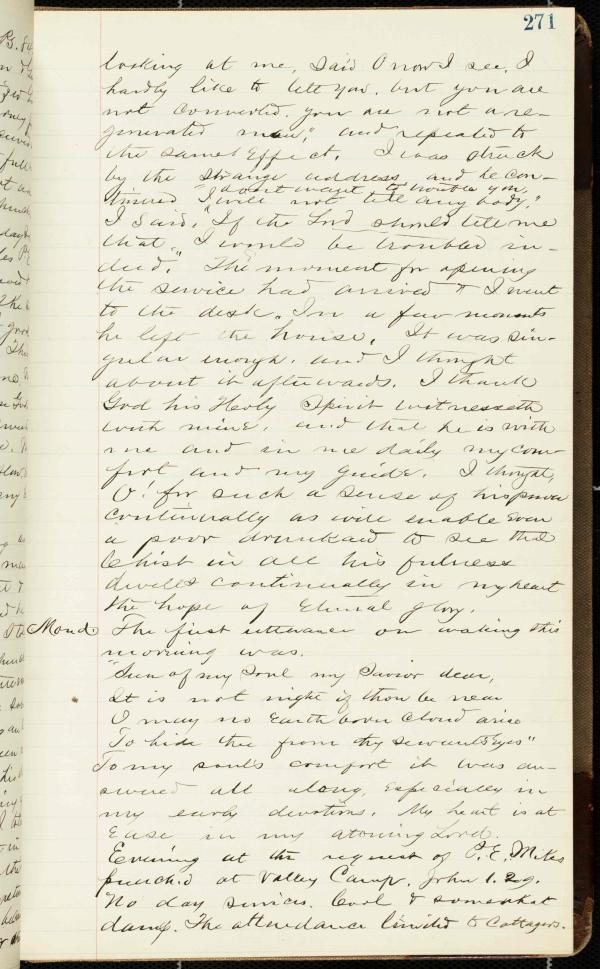 271
looking at me, said O now I see, I
hardly like to tell you, but you are
not converted, you are not a re-
generated man," and repeated to
the same Effect. I was struck
by the strange address, and he con-
don't want to trouble you,
tinued "I will not tell any body."
I said, "If the Lord should tell me
that, I would be troubled in-
deed." The moment for opening
the service had arrived & I went
to the desk. In a few moments
he left the house. It was sin-
gular enough, and I thought
about it afterwards. I thank
God his Holy Spirit witnesseth
with mine, and that he is with
me and in me daily my com-
fort and my guide. I thought,
O! for such a sense of his power
continually as will enable even
a poor drunkard to see that
Christ in all his fulness
dwells continually in my heart
the hope of Eternal glory.
Mond. The first utterance on waking this
morning was.
"Sun of my Soul my Savior dear,
It is not night if thou be near
O may no Earth born cloud arise
To hide thee from thy servants Eyes"
To my soul's comfort it was an-
swered all along, Especially in
my early devotions. My heart is at
Ease in my atoning Lord.
Evening at the request of P. E.
preached at Valley Camp. John 1.29.
No day services. Cool & somewhat
damp. The attendance limited to Cottagers.